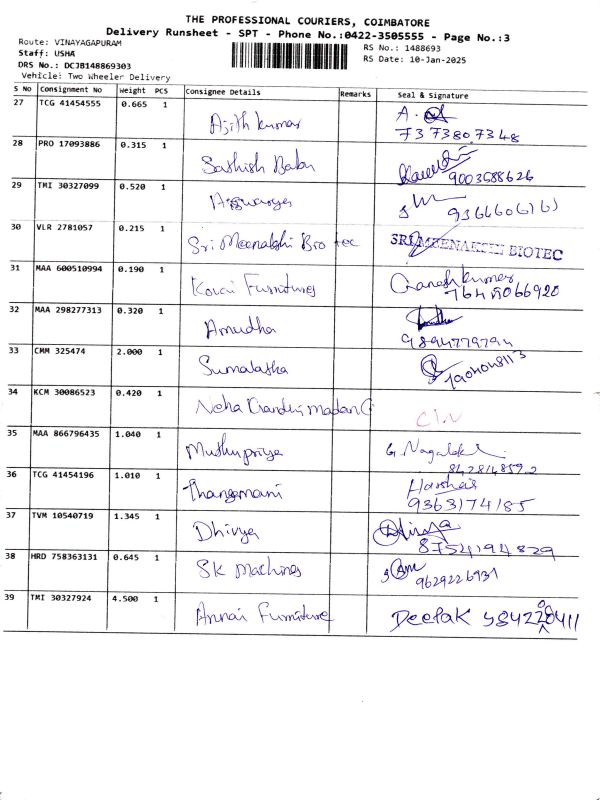 THE PROFESSIONAL COURIERS, COIMBATORE
Delivery Runsheet - SPT - Phone No.:0422-3505555 - Page No.:3
Route: VINAYAGAPURAM
Staff: USHA
DRS No.: DCJB148869303
Vehicle: Two Wheeler Delivery
RS No.: 1488693
RS Date: 10-Jan-2025
S No Consignment No Weight PCS Consignee Details Remarks Seal & Signature
27 TCG 41454555 0.665 1 Ajith Kumar A.
7373807348
28 PRO 17093886 0.315 1 Sathish Babu
9003588626
29 TMI 30327099 0.520 1 Aiswarya
30 VLR 2781057 0.215 1 Sri Meenakshi Bio tec SRI MEENAKSHI BIOTEC
31 MAA 600510994 0.190 1 Kovai Furnitures Ganesh Kumar
32 MAA 298277313 0.320 1 Amudha
9894779794
33 CMM 325474 2.000 1 Sumalatha
34 KCM 30086523 0.420 1 Neha
35 MAA 866796435 1.040 1 Muthupriya G. Nagalak
8428148592
36 TCG 41454196 1.010 1 Thangamani
9363174185
37 TVM 10540719 1.345 1 Dhivya Dhivya
8754194829
38 HRD 758363131 0.645 1 SK Machines
9629226931
39 TMI 30327924 4.500 1 Annai Furniture Deepak